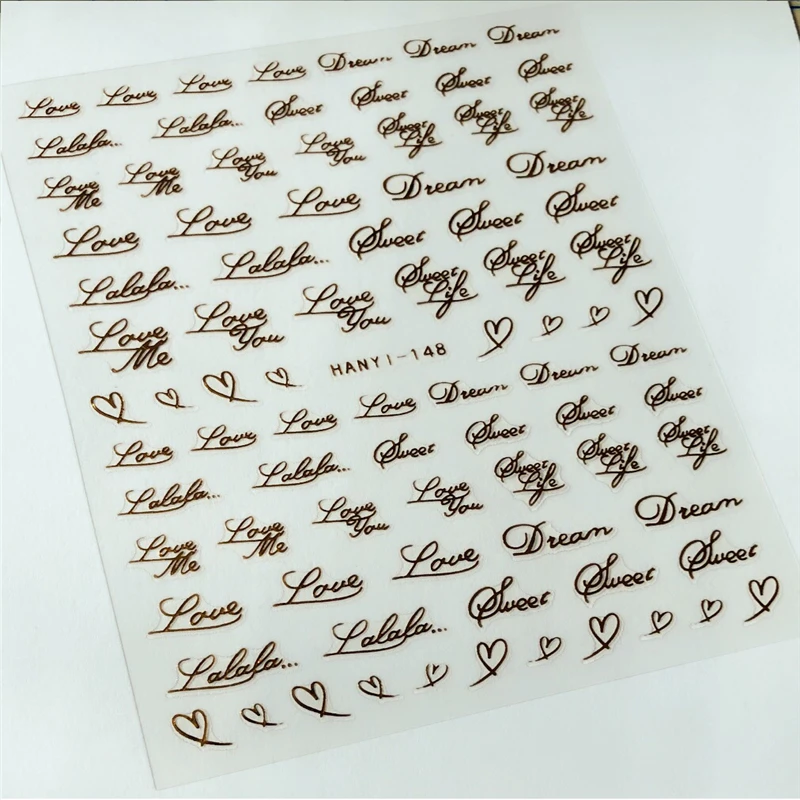 Love Love Love Love Dream Dream Dream
Lalala... Lalala... Sweet Sweet Sweet Sweet
Love Love Love Love Sweet Sweet Sweet
Me Me You You Life Life Life
Love Love Love Dream Dream
Lalala... Lalala... Sweet Sweet Sweet
Love Love Love Sweet Sweet Sweet
Me You You Life Life Life
HANYI-148
Love Love Love Love Dream Dream Dream
Lalala... Lalala... Sweet Sweet Sweet Sweet
Love Love Love Love Sweet Sweet Sweet
Me Me You You Life Life Life
Love Love Love Dream Dream
Lalala... Lalala... Sweet Sweet Sweet